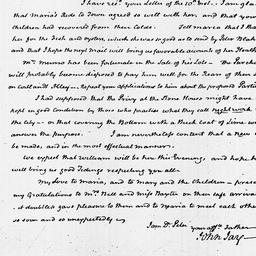 I have rec.d your Letter of the 10.th inst. I am glad
that Maria's Ride to Town agreed so well with her, and that your
children had recovered from their Colds. Tell Maria that I thank
her for the Fish and oysters, which she was so good as to send by Peter
and that I hope the next Mail will bring us favorable accounts of her Health
Mr. Munro has been fortunate in the Sale of his Lots. The Purchasers
will probably become disposed to pay him well for the Rear of them
on Cortlandt Alley. Repeat your applications to him about the proposed Partition
I had supposed that the Privy at the Stone House might have
kept in good condition by those who practice what they call night work in
the city or that covering the Bottom with a thick Coat of Lime would
answer the purpose. I am nevertheless content that a new one
be made, and in the most effectual manner.
We expect that William will be here this Evening, and hope he
will bring us good Tidings respecting you all.
My Love to Maria, and to Mary and the Children present
my Gratulations to Mrs. Bell and Miss Bayter on their safe arrival
it doubtless gave pleasure to them and to Maria to meet each other
so soon and so unexpectedly
I am Dr. Peter your aff.te Father
John Jay